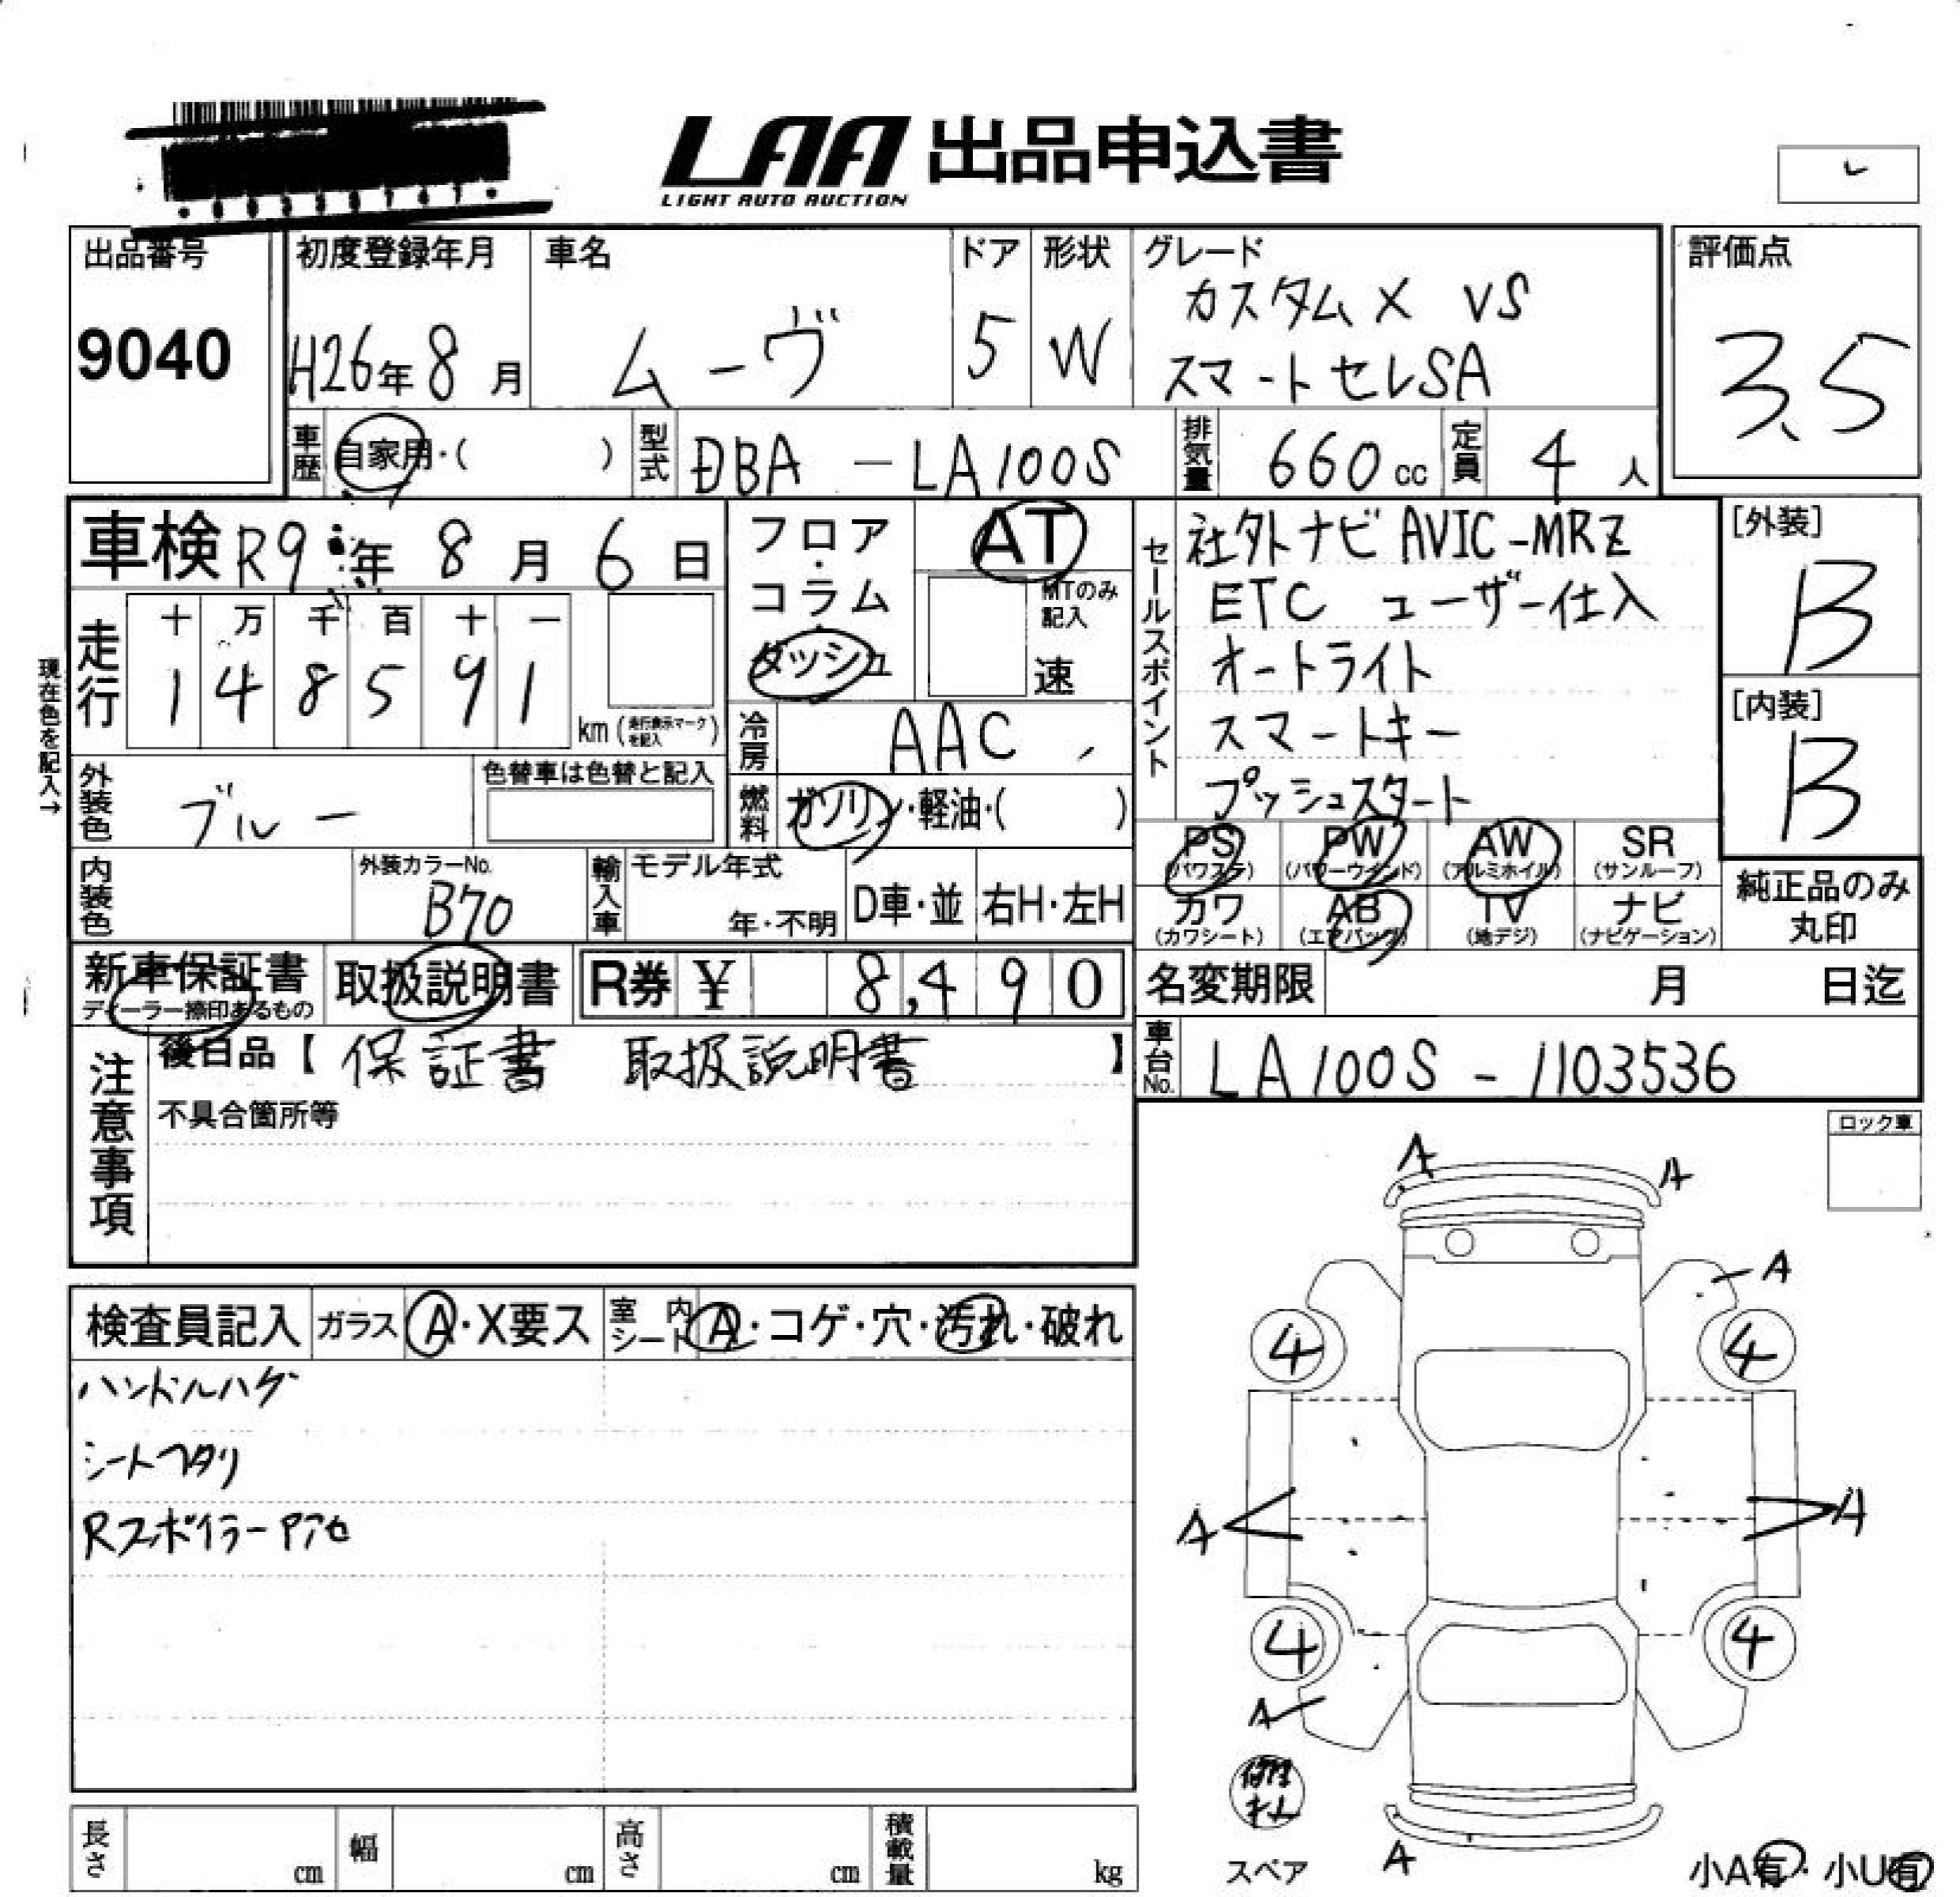 LAA 出品申込書
LIGHT AUTO AUCTION
出品番号
9040
初度登録年月
H26年8月
車名
ムーヴ
ドア
5
形状
W
グレード
カスタムX VS
スマートセレSA
評価点
3.5
車歴
自家用・( )
型式
DBA - LA100S
排気量
660cc
定員
4人
車検 R9年8月6日
フロア・コラム
ダッシュ
AT
MTのみ記入
速
走行
十 万 千 百 十 一
1 4 8 5 9 1
km(走行表示マークを記入)
現在色を記入→
冷房
AAC
外装色
ブルー
色替車は色替と記入
燃料
ガソリン・軽油・( )
セールスポイント
社外ナビ AVIC-MRZ
ETC ユーザー仕入
オートライト
スマートキー
プッシュスタート
[外装]
B
[内装]
B
PS (パワステ)
PW (パワーウインド)
AW (アルミホイル)
SR (サンルーフ)
カワ (カワシート)
AB (エアバッグ)
TV (地デジ)
ナビ (ナビゲーション)
純正品のみ丸印
内装色
外装カラーNo.
B70
輸入車
モデル年式
年・不明
D車・並
右H・左H
新車保証書
ディーラー捺印あるもの
取扱説明書
R券 ¥ 8,490
名変期限 月 日迄
車台No.
LA100S - 1103536
注意事項
後日品【 保証書 取扱説明書 】
不具合箇所等
ロック車
検査員記入
ガラス
A・X要ス
室内シート
A・コゲ・穴・汚れ・破れ
ハンドルハゲ
シートヘタリ
Rスポイラー
A
A
A
4
4
A
A
4
4
A
A
スペア
小A有・小U有
長さ cm
幅 cm
高さ cm
積載量 kg